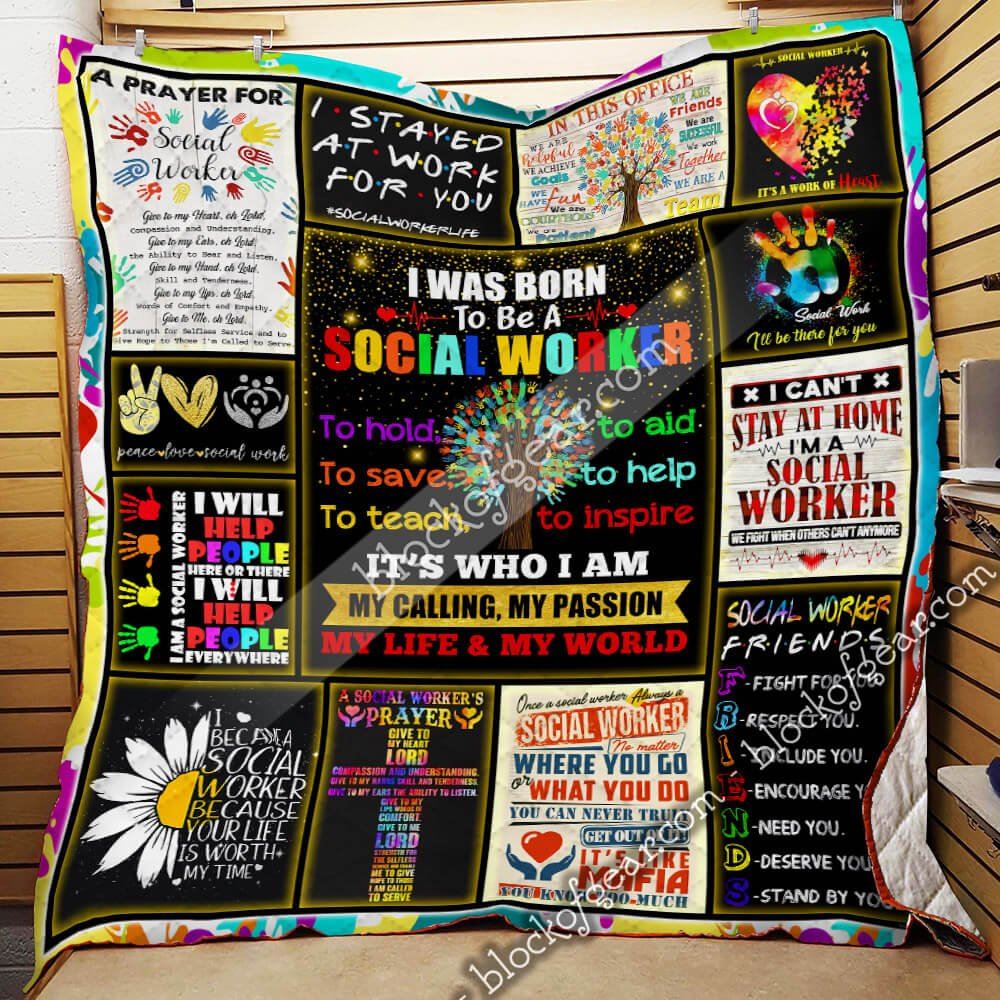 A PRAYER FOR
Social
Worker
Give to my Heart, oh Lord,
Compassion and Understanding.
Give to my Ears, oh Lord,
the Ability to Hear and Listen.
Give to my Hand, oh Lord,
Skill and Tenderness.
Give to my Lips, oh Lord,
Words of Comfort and Empathy.
Give to Me, oh Lord,
Strength for Selfless Service and to
Give Hope to Those I'm Called to Serve
I STAYED
AT WORK
FOR YOU
#SOCIALWORKERLIFE
IN THIS OFFICE
WE ARE
Helpful
WE ACHIEVE
Goals
WE
HAVE Fun
We are
COURTEOUS
We are
Patient
WE ARE
Friends
We are
SUCCESSFUL
We work
Together
WE ARE A
Team
SOCIAL WORKER
IT'S A WORK OF Heart
Social Work
I'll be there for you
peace love social work
I WAS BORN
To Be A
SOCIAL WORKER
To hold, to aid
To save, to help
To teach, to inspire
IT'S WHO I AM
MY CALLING, MY PASSION
MY LIFE & MY WORLD
I CAN'T
STAY AT HOME
I'M A
SOCIAL
WORKER
WE FIGHT WHEN OTHERS CAN'T ANYMORE
I AM A SOCIAL WORKER
I WILL
HELP
PEOPLE
HERE OR THERE
I WILL
HELP
PEOPLE
EVERYWHERE
SOCIAL WORKER
F·R·I·E·N·D·S
F -FIGHT FOR YOU.
R -RESPECT YOU.
I -INCLUDE YOU.
E -ENCOURAGE Y
N -NEED YOU.
D -DESERVE YOU
S -STAND BY YOU
I
BECAME A
SOCIAL
WORKER
BECAUSE
YOUR LIFE
IS WORTH
MY TIME
A SOCIAL WORKER'S
PRAYER
GIVE TO
MY HEART
LORD
COMPASSION AND UNDERSTANDING.
GIVE TO MY HANDS SKILL AND TENDERNESS.
GIVE TO MY EARS THE ABILITY TO LISTEN.
GIVE TO MY
LIPS WORDS OF
COMFORT.
GIVE TO ME
LORD
STRENGTH FOR
THE SELFLESS
SERVICE AND ENABLE
ME TO GIVE
HOPE TO THOSE
I AM CALLED
TO SERVE
Once a social worker Always a
SOCIAL WORKER
No matter
WHERE YOU GO
or WHAT YOU DO
YOU CAN NEVER TRULY
GET OUT
IT'S LIKE
MAFIA
YOU KNOW TOO MUCH
blockofgear.com
blockofgear.com
blockofgear.com
- blockofgear.com